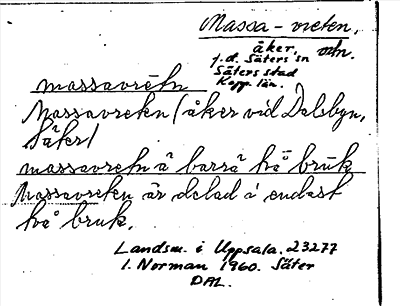 Massa-vreten,
åker,
f.d. Säters sn
Säters stad
Kopp. län.
massavrętn
Massavrekn (åker vid Dalsbyn,
Säter)
massavrętn ä barrä två bruk
Massavreken är delad i endast
två bruk.
Landsm. i Uppsala. 23277
I. Norman 1960. Säter
DAL.